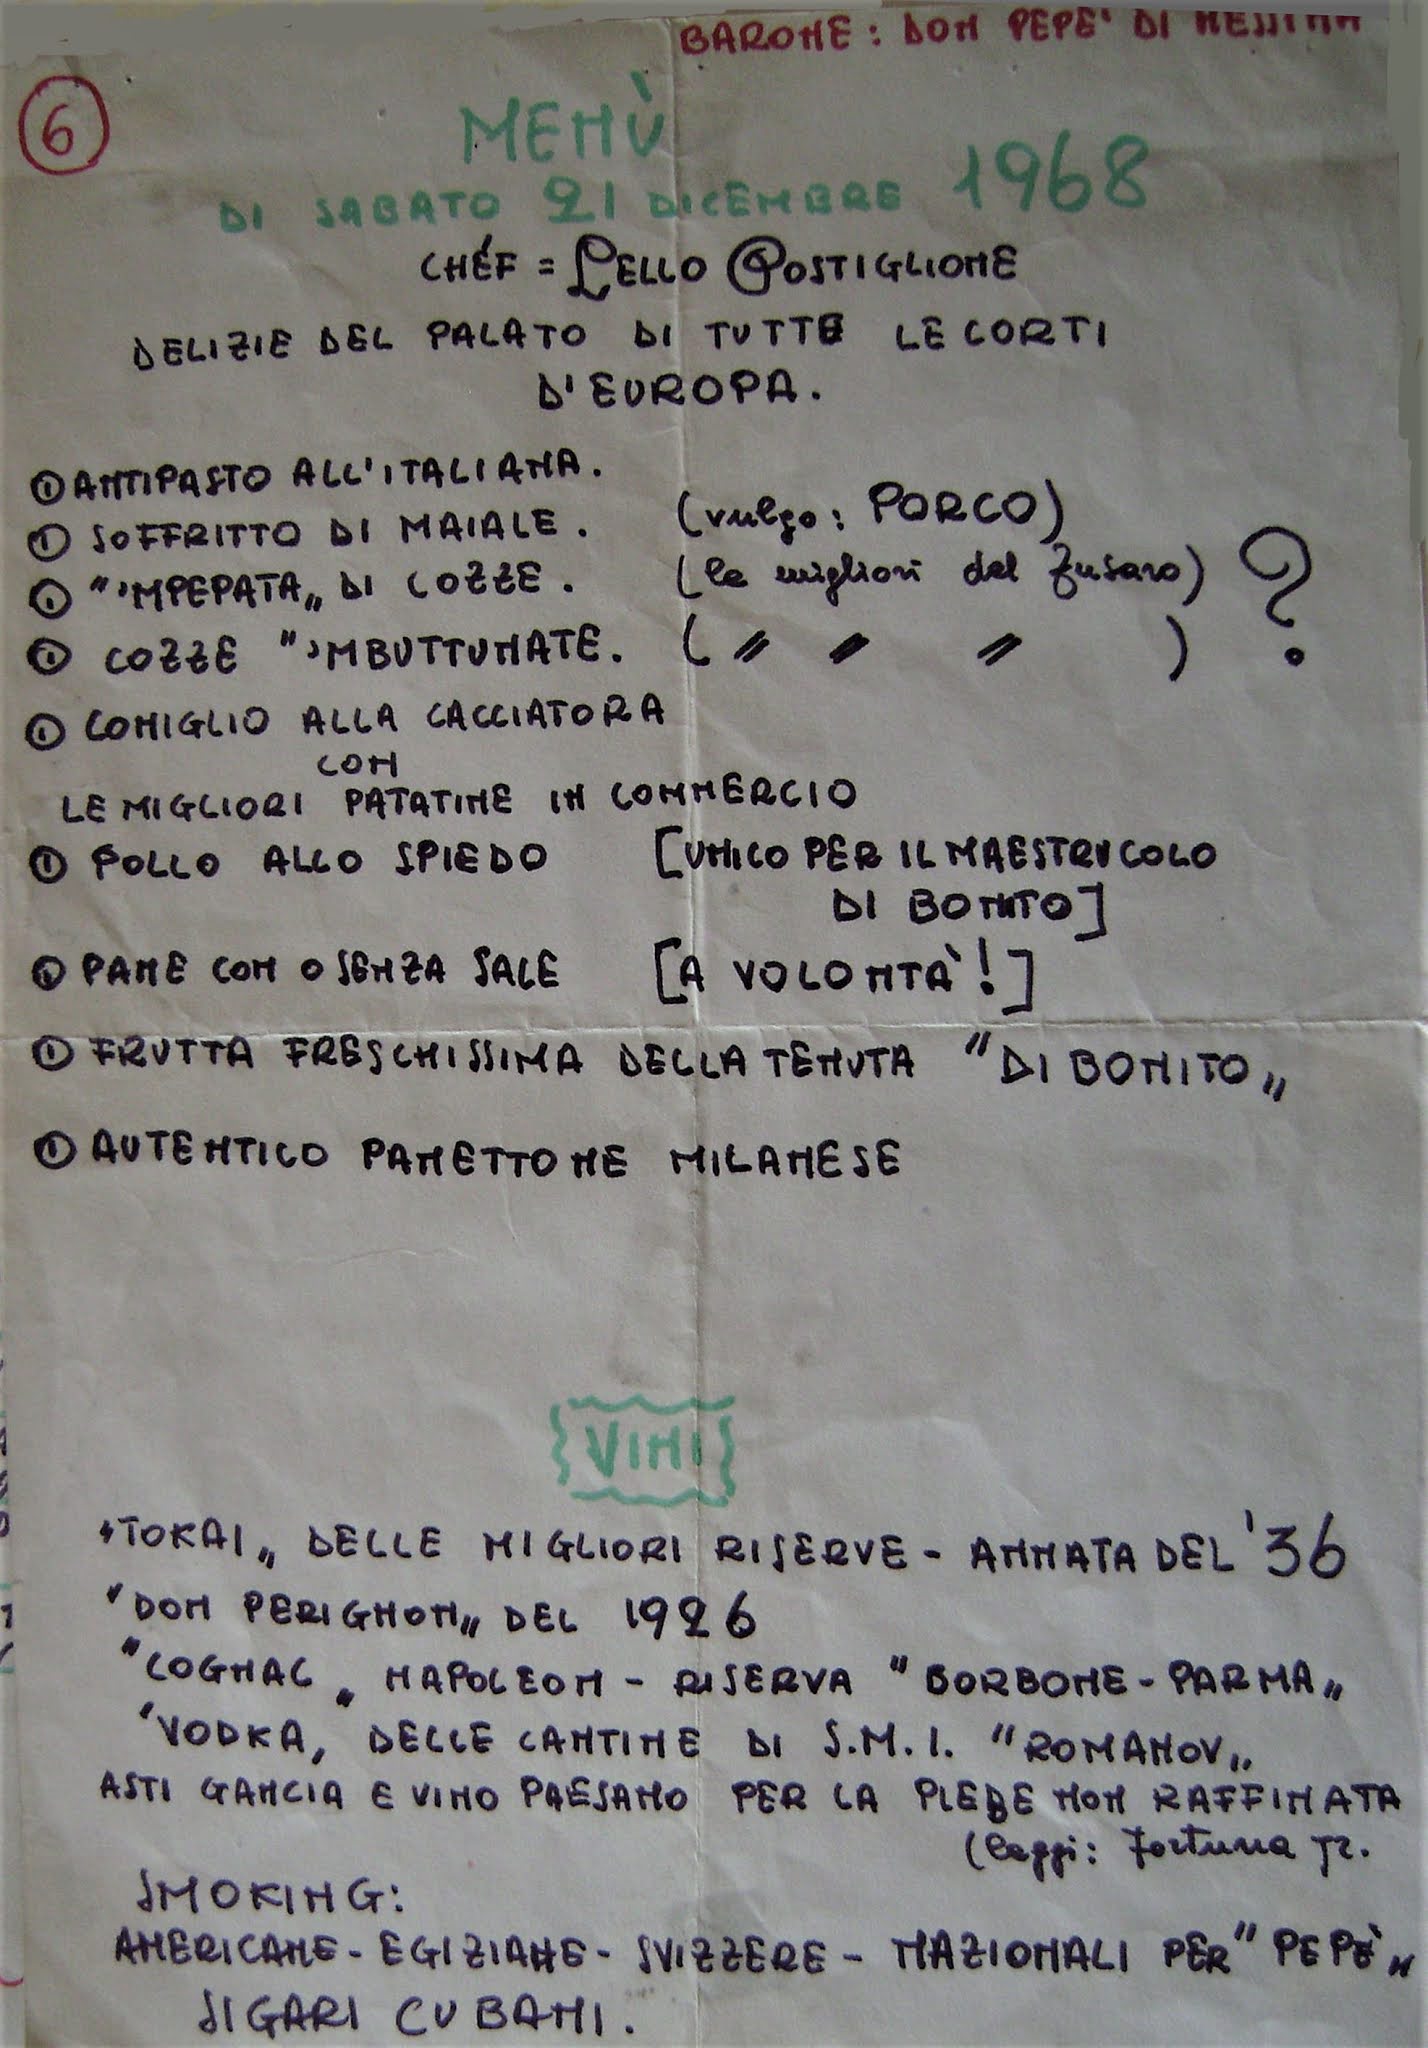 BARONE: DON PEPE' DI MESSINA
6
MENÙ
DI SABATO 21 DICEMBRE 1968
CHÉF = LELLO POSTIGLIONE
DELIZIE DEL PALATO DI TUTTE LE CORTI
D'EUROPA.
① ANTIPASTO ALL'ITALIANA.
① SOFFRITTO DI MAIALE. (vulgo: PORCO)
① "'MPEPATA„ DI COZZE. (le migliori del Fusaro) ?
① COZZE "'MBUTTUNATE. ( " " " )
① CONIGLIO ALLA CACCIATORA
CON
LE MIGLIORI PATATINE IN COMMERCIO
① POLLO ALLO SPIEDO [UNICO PER IL MAESTRUCOLO
DI BONITO]
① PANE CON O SENZA SALE [A VOLONTÀ!]
① FRUTTA FRESCHISSIMA DELLA TENUTA "DI BONITO„
① AUTENTICO PANETTONE MILANESE
VINI
"TOKAI„ DELLE MIGLIORI RISERVE - ANNATA DEL '36
"DON PERIGNON„ DEL 1926
"COGNAC„ NAPOLEON - RISERVA "BORBONE-PARMA„
"VODKA, DELLE CANTINE DI S.M.I. "ROMANOV„
ASTI GANCIA E VINO PAESANO PER LA PLEBE NON RAFFINATA
(leggi: Fortuna Jr.
SMOKING:
AMERICANE - EGIZIANE - SVIZZERE - NAZIONALI PER "PEPÈ„
SIGARI CUBANI.